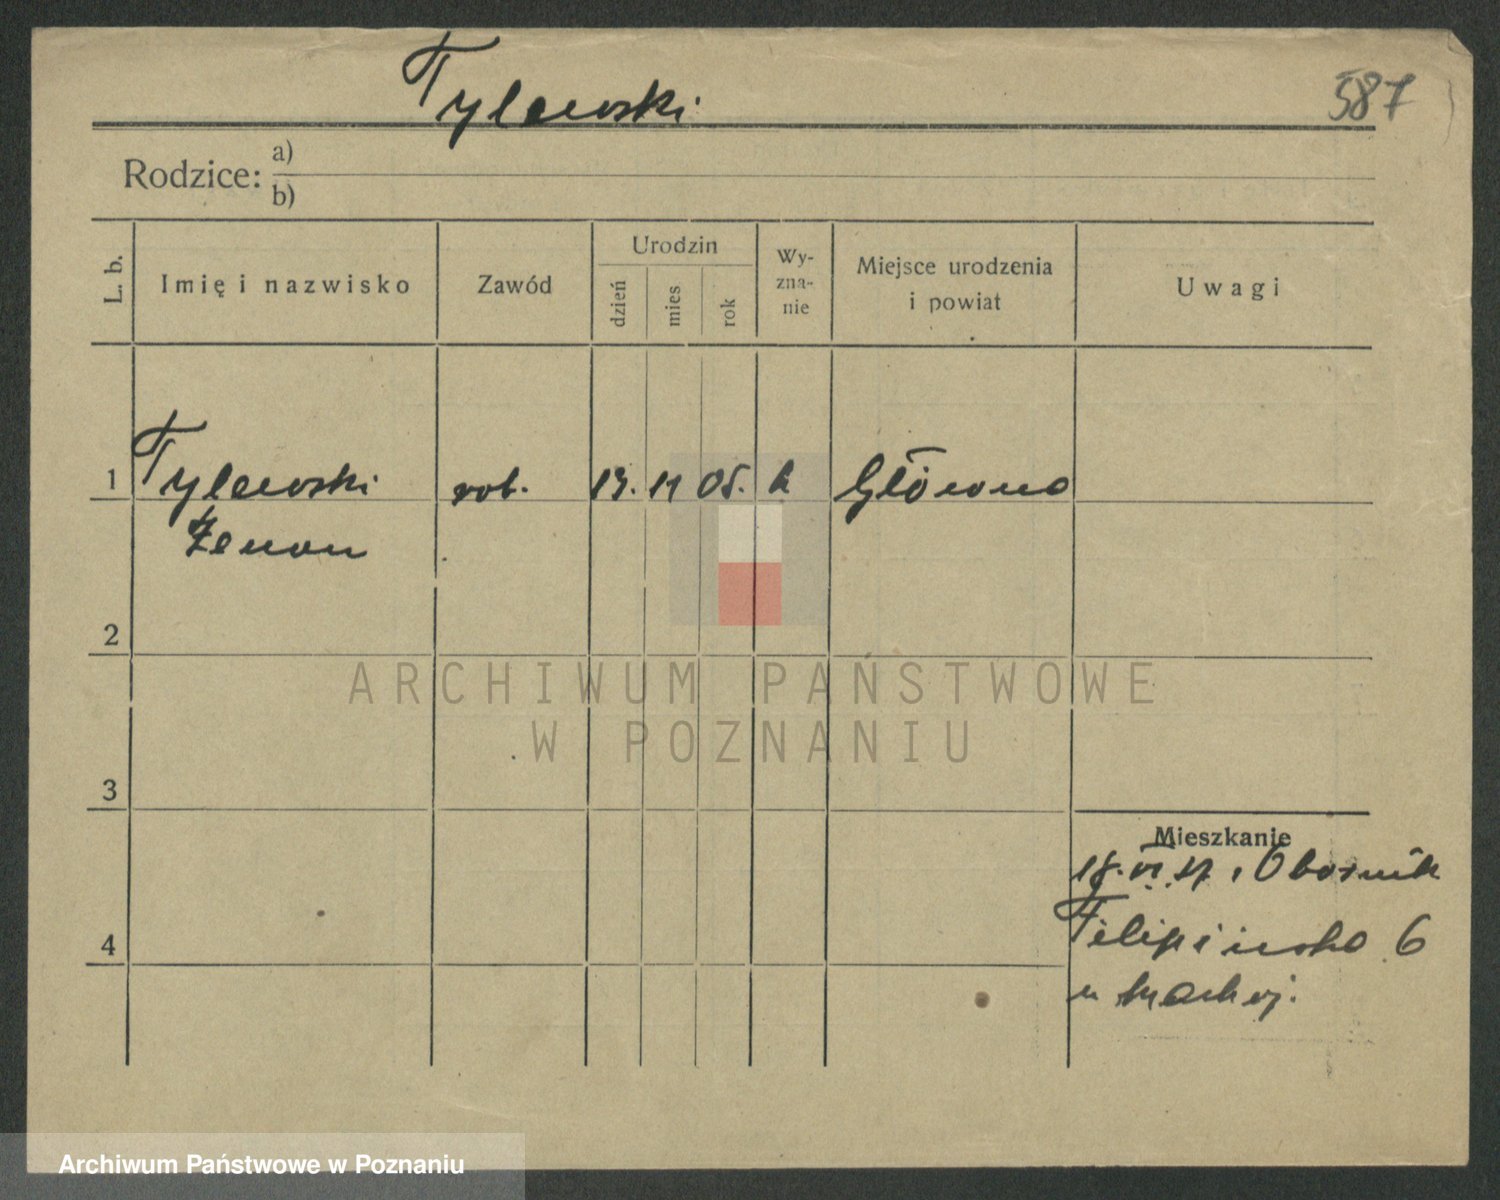 Tylewski
587
Rodzice: a)
b)
L. b.
Imię i nazwisko
Zawód
Urodzin
dzień
mies
rok
Wy-
zna-
nie
Miejsce urodzenia
i powiat
Uwagi
1 Tylewski rob. 19. 11 05. k Główno
Zenon
2
ARCHIWUM PAŃSTWOWE
W POZNANIU
3
Mieszkanie
18. VI 37, Obornik
4
Filipińska 6
u
Archiwum Państwowe w Poznaniu